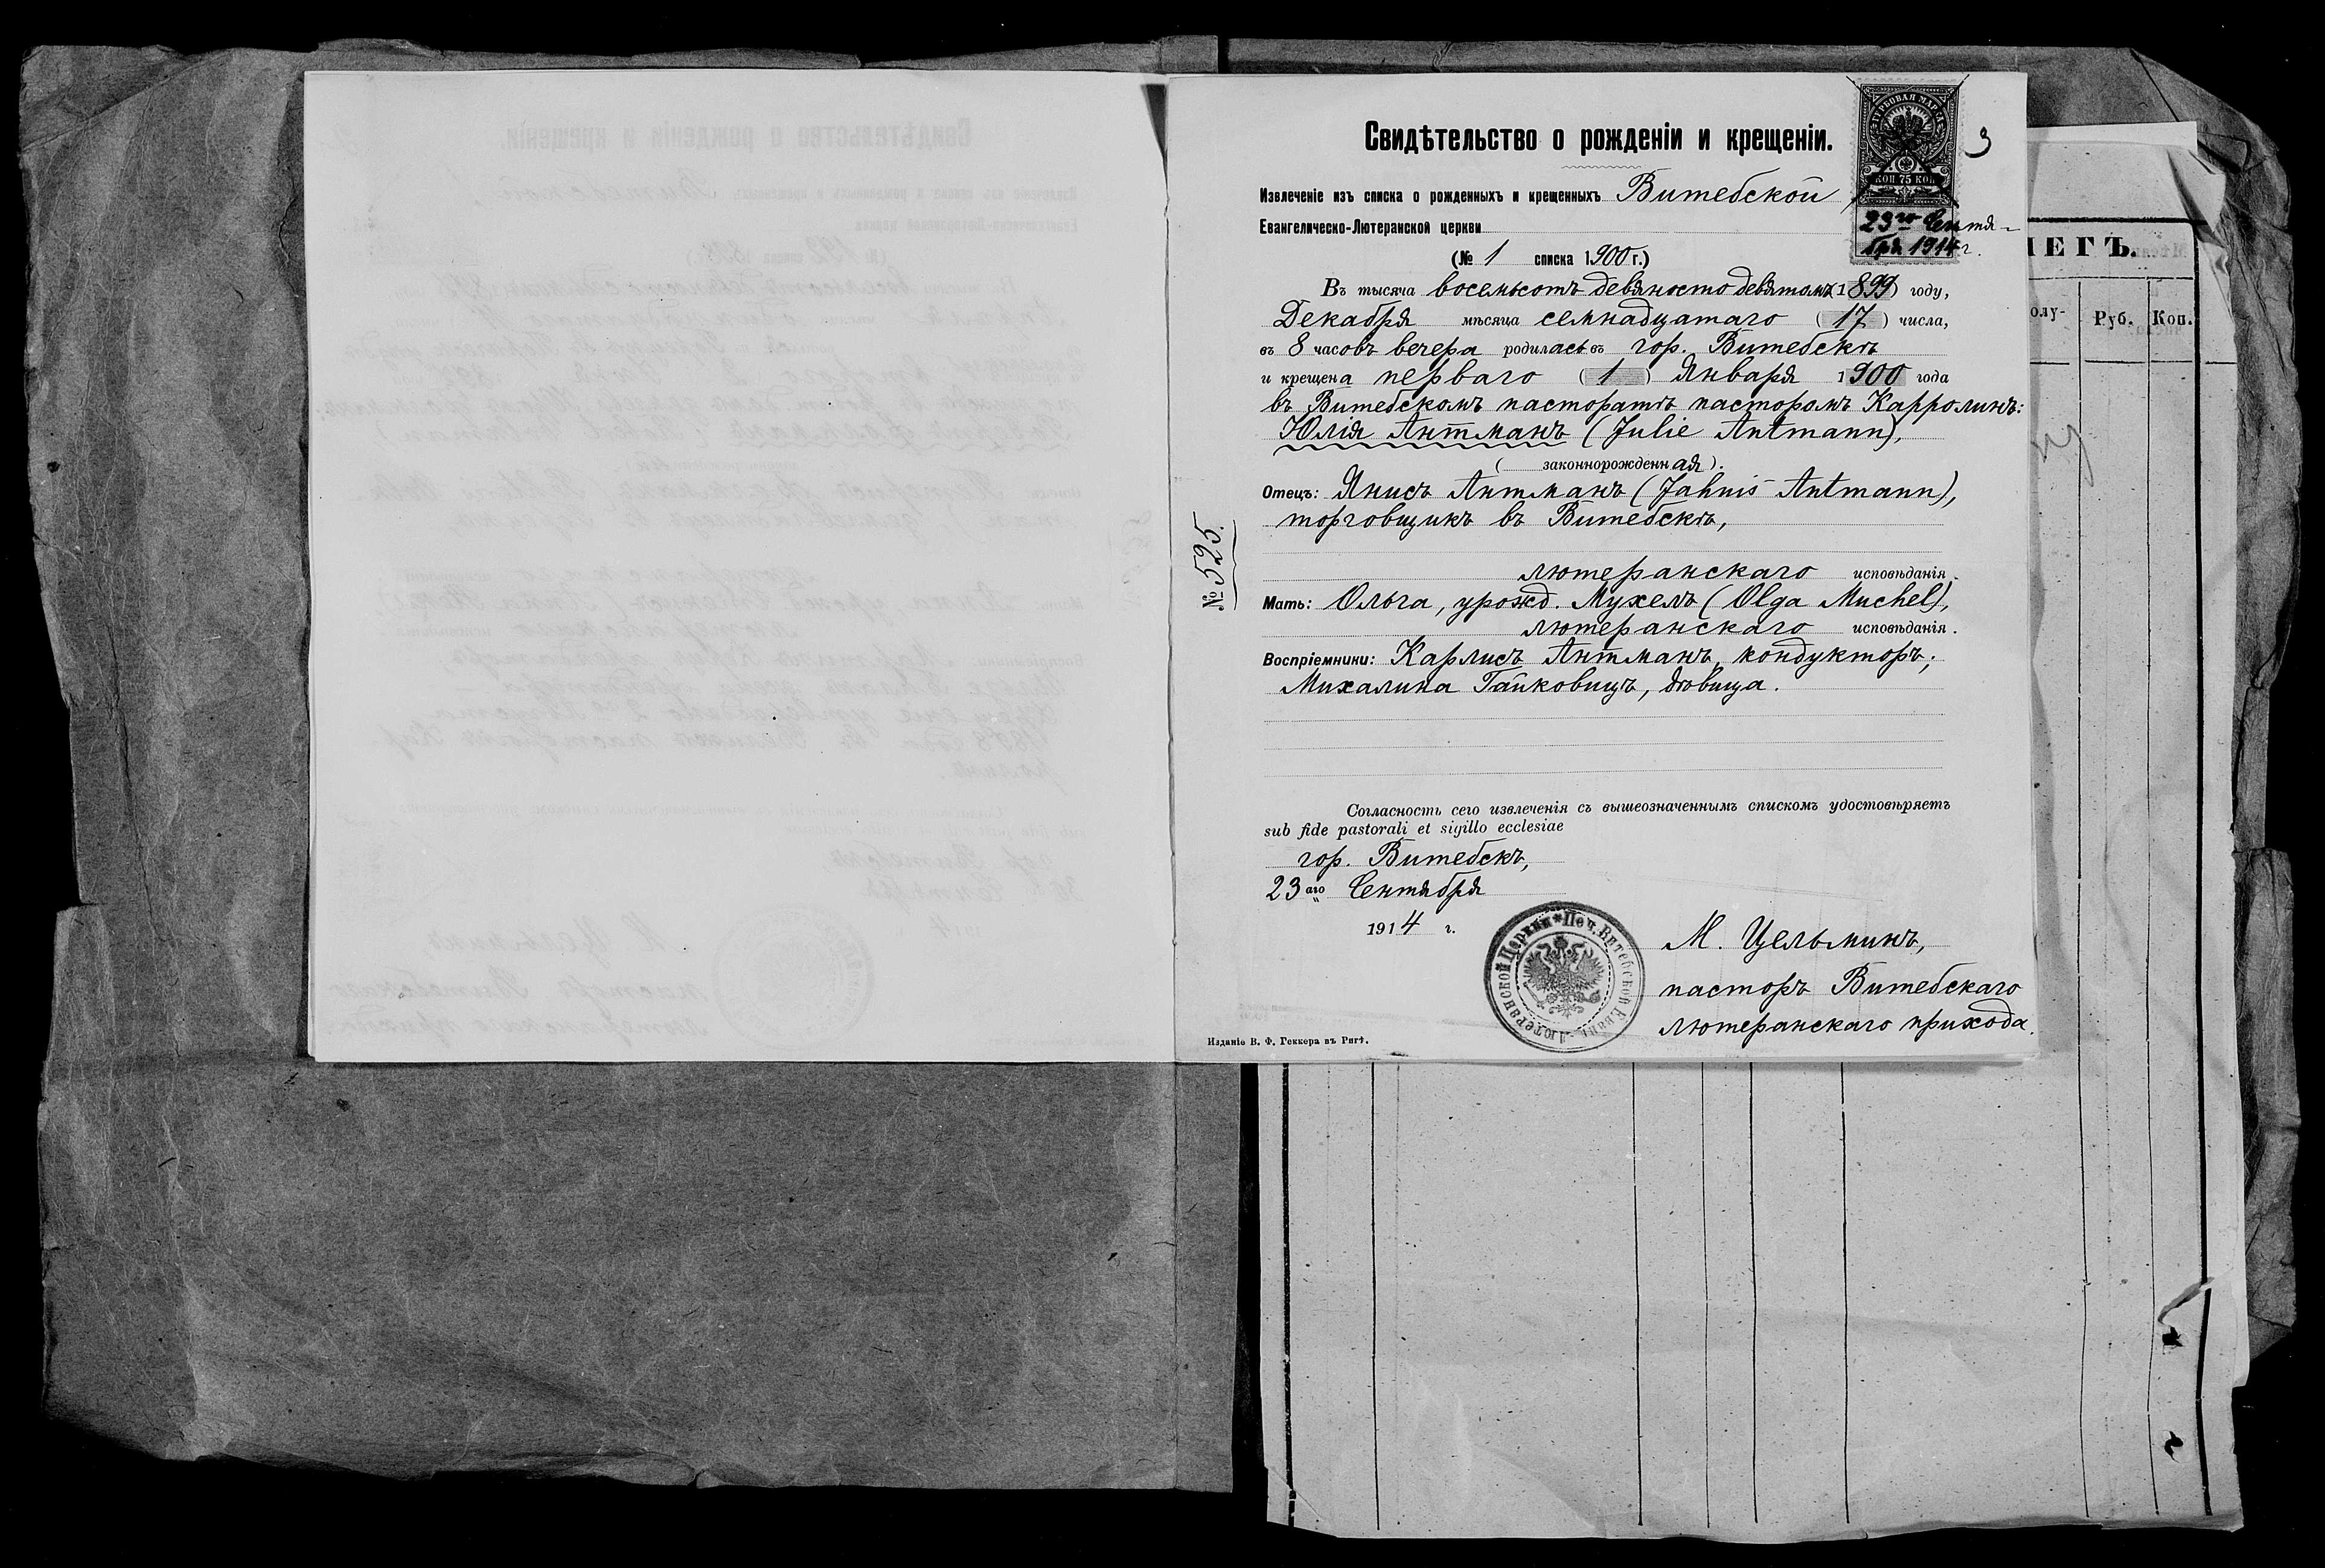 Свидѣтельство о рожденіи и крещеніи.
3
ГЕРБОВАЯ МАРКА
КОП 75 КОП
23го Сентя-
бря 1914 г.
Извлеченіе изъ списка о рожденныхъ и крещенныхъ Витебской
Евангелическо-Лютеранской церкви
(№ 1 списка 1900 г.)
Въ тысяча восемьсотъ девяносто девятомъ (1899) году,
Декабря мѣсяца семнадцатаго (17) числа,
въ 8 часовъ вечера родилась въ гор. Витебскѣ
и крещена перваго (1) Января 1900 года
въ Витебскомъ пасторатѣ пасторомъ Карролинъ:
Юлія Антманъ (Julie Antmann),
(законнорожденная).
Отецъ: Янисъ Антманъ (Jahnis Antmann),
торговщикъ въ Витебскѣ,
лютеранскаго исповѣданія.
Мать: Ольга, урожд. Мухель (Olga Muchel),
лютеранскаго исповѣданія.
Воспріемники: Карлисъ Антманъ, кондукторъ;
Михалина Гайковицъ, дѣвица.
№ 525.
Согласность сего извлеченія съ вышеозначеннымъ спискомъ удостовѣряетъ
sub fide pastorali et sigillo ecclesiae
гор. Витебскъ,
23аго Сентября
1914 г.
Печ. Витебской Еванг.-Лютеранской Церкви
М. Цельминъ,
пасторъ Витебскаго
лютеранскаго прихода.
Изданіе В. Ф. Геккера въ Ригѣ.
ЕГЪ.
олу-
Руб.
Коп.